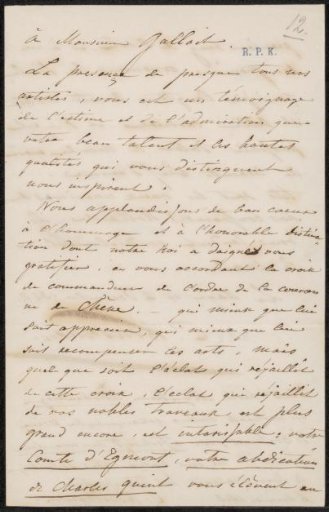 12.
à Monsieur Gallait.
R. P. K.
La présence de presque tous nos
artistes, vous est un témoignage
de l'estime et de l'admiration que
votre beau talent et les hautes
qualités qui vous distinguent
nous inspirent.
Nous applaudissons de bon coeur
à l'hommage et à l'honorable distinc
tion dont notre Roi a daigné vous
gratifier, en vous accordant la croix
de commandeur de l'ordre de la couron
ne de Chêne. — qui mieux que lui
sait apprécier, qui mieux que lui
sait récompenser les arts, mais
quel que soit l'éclat qui rejaillit
de cette croix, l'éclat qui rejaillit
de vos nobles travaux est plus
grand encore, est intarissable; votre
Comte d'Egmont, votre abdication
de Charles quint vous élèvent au